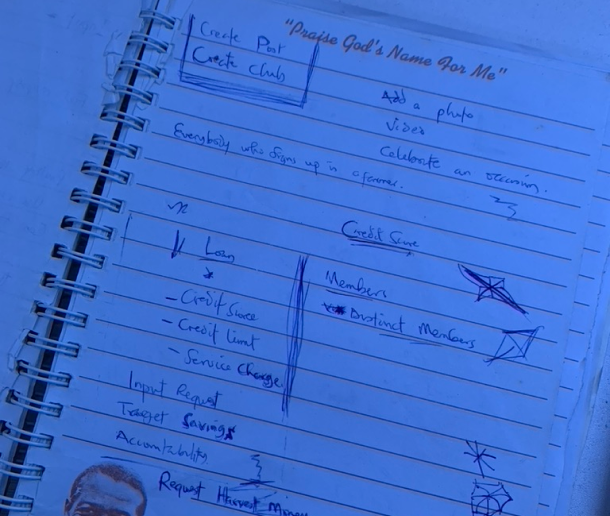 "Praise God's Name For Me"
Create Post
Create club
Add a photo
Video
Celebrate an occasion.
Everybody who signs up is a farmer.
Credit Score
Loan
- Credit Score
- Credit Limit
- Service Charge
Members
Distinct Members
Input Request
Target Savings
Accountability
Request Harvest Money